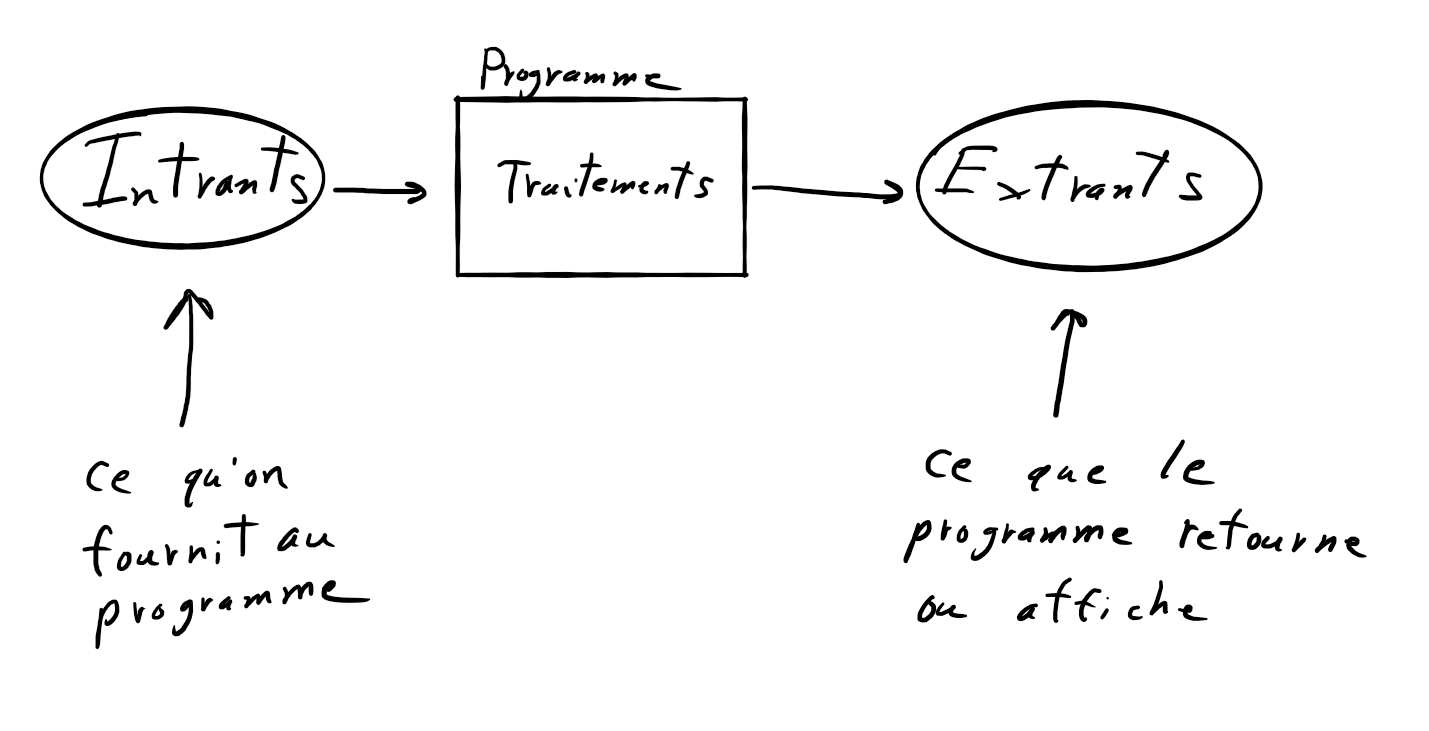 Programme
Intrants
Traitements
Extrants
ce qu'on
fournit au
programme
ce que le
programme retourne
ou affiche